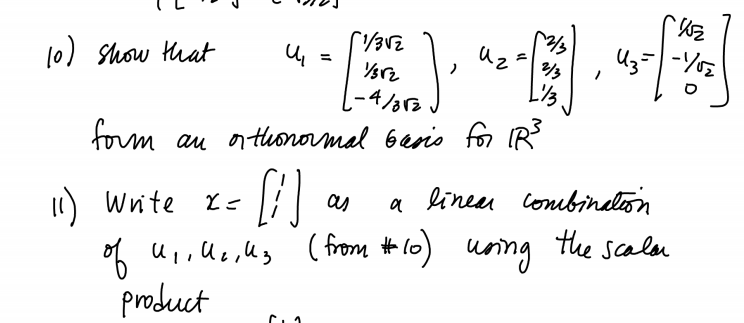 10) Show that u₁ = [1/3√2 1/3√2 -4/3√2], u₂ = [2/3 2/3 1/3], u₃ = [1/√2 -1/√2 0]
form an orthonormal basis for ℝ³
11) Write x = [1 1 1] as a linear combination
of u₁, u₂, u₃ (from #10) using the scalar
product